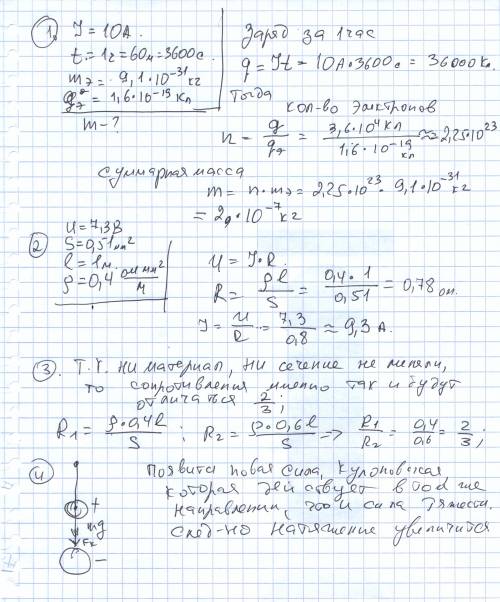 1. I = 10А.
t = 1г = 60м = 3600с.
mэ = 9,1·10⁻³¹ кг
qэ = 1,6·10⁻¹⁹ Кл
m - ?
Заряд за 1 час
q = It = 10А·3600с = 36000 Кл.
Тогда
кол-во электронов
n = q/qэ = 3,6·10⁴ Кл / 1,6·10⁻¹⁹ Кл ≈ 2,25·10²³
Суммарная масса
m = n·mэ = 2,25·10²³ · 9,1·10⁻³¹ кг
= 2·10⁻⁷ кг
2. U = 7,3В
S = 0,51 мм²
l = 1м.
ρ = 0,4 ом мм²/м
U = I·R.
R = ρl/S = 0,4·1/0,51 = 0,78 ом.
I = U/R = 7,3/0,8 ≈ 9,3 А.
3. Т.к. ни материал, ни сечение не меняли,
то сопротивления именно так и будут
отличаться 2/3;
R1 = ρ·0,4l/S ; R2 = ρ·0,6l/S => R1/R2 = 0,4/0,6 = 2/3;
4. Появится новая сила, кулоновская
которая действует в той же
направлении, что и сила тяжести.
след-но натяжение увеличится
+
mg
Fк
−